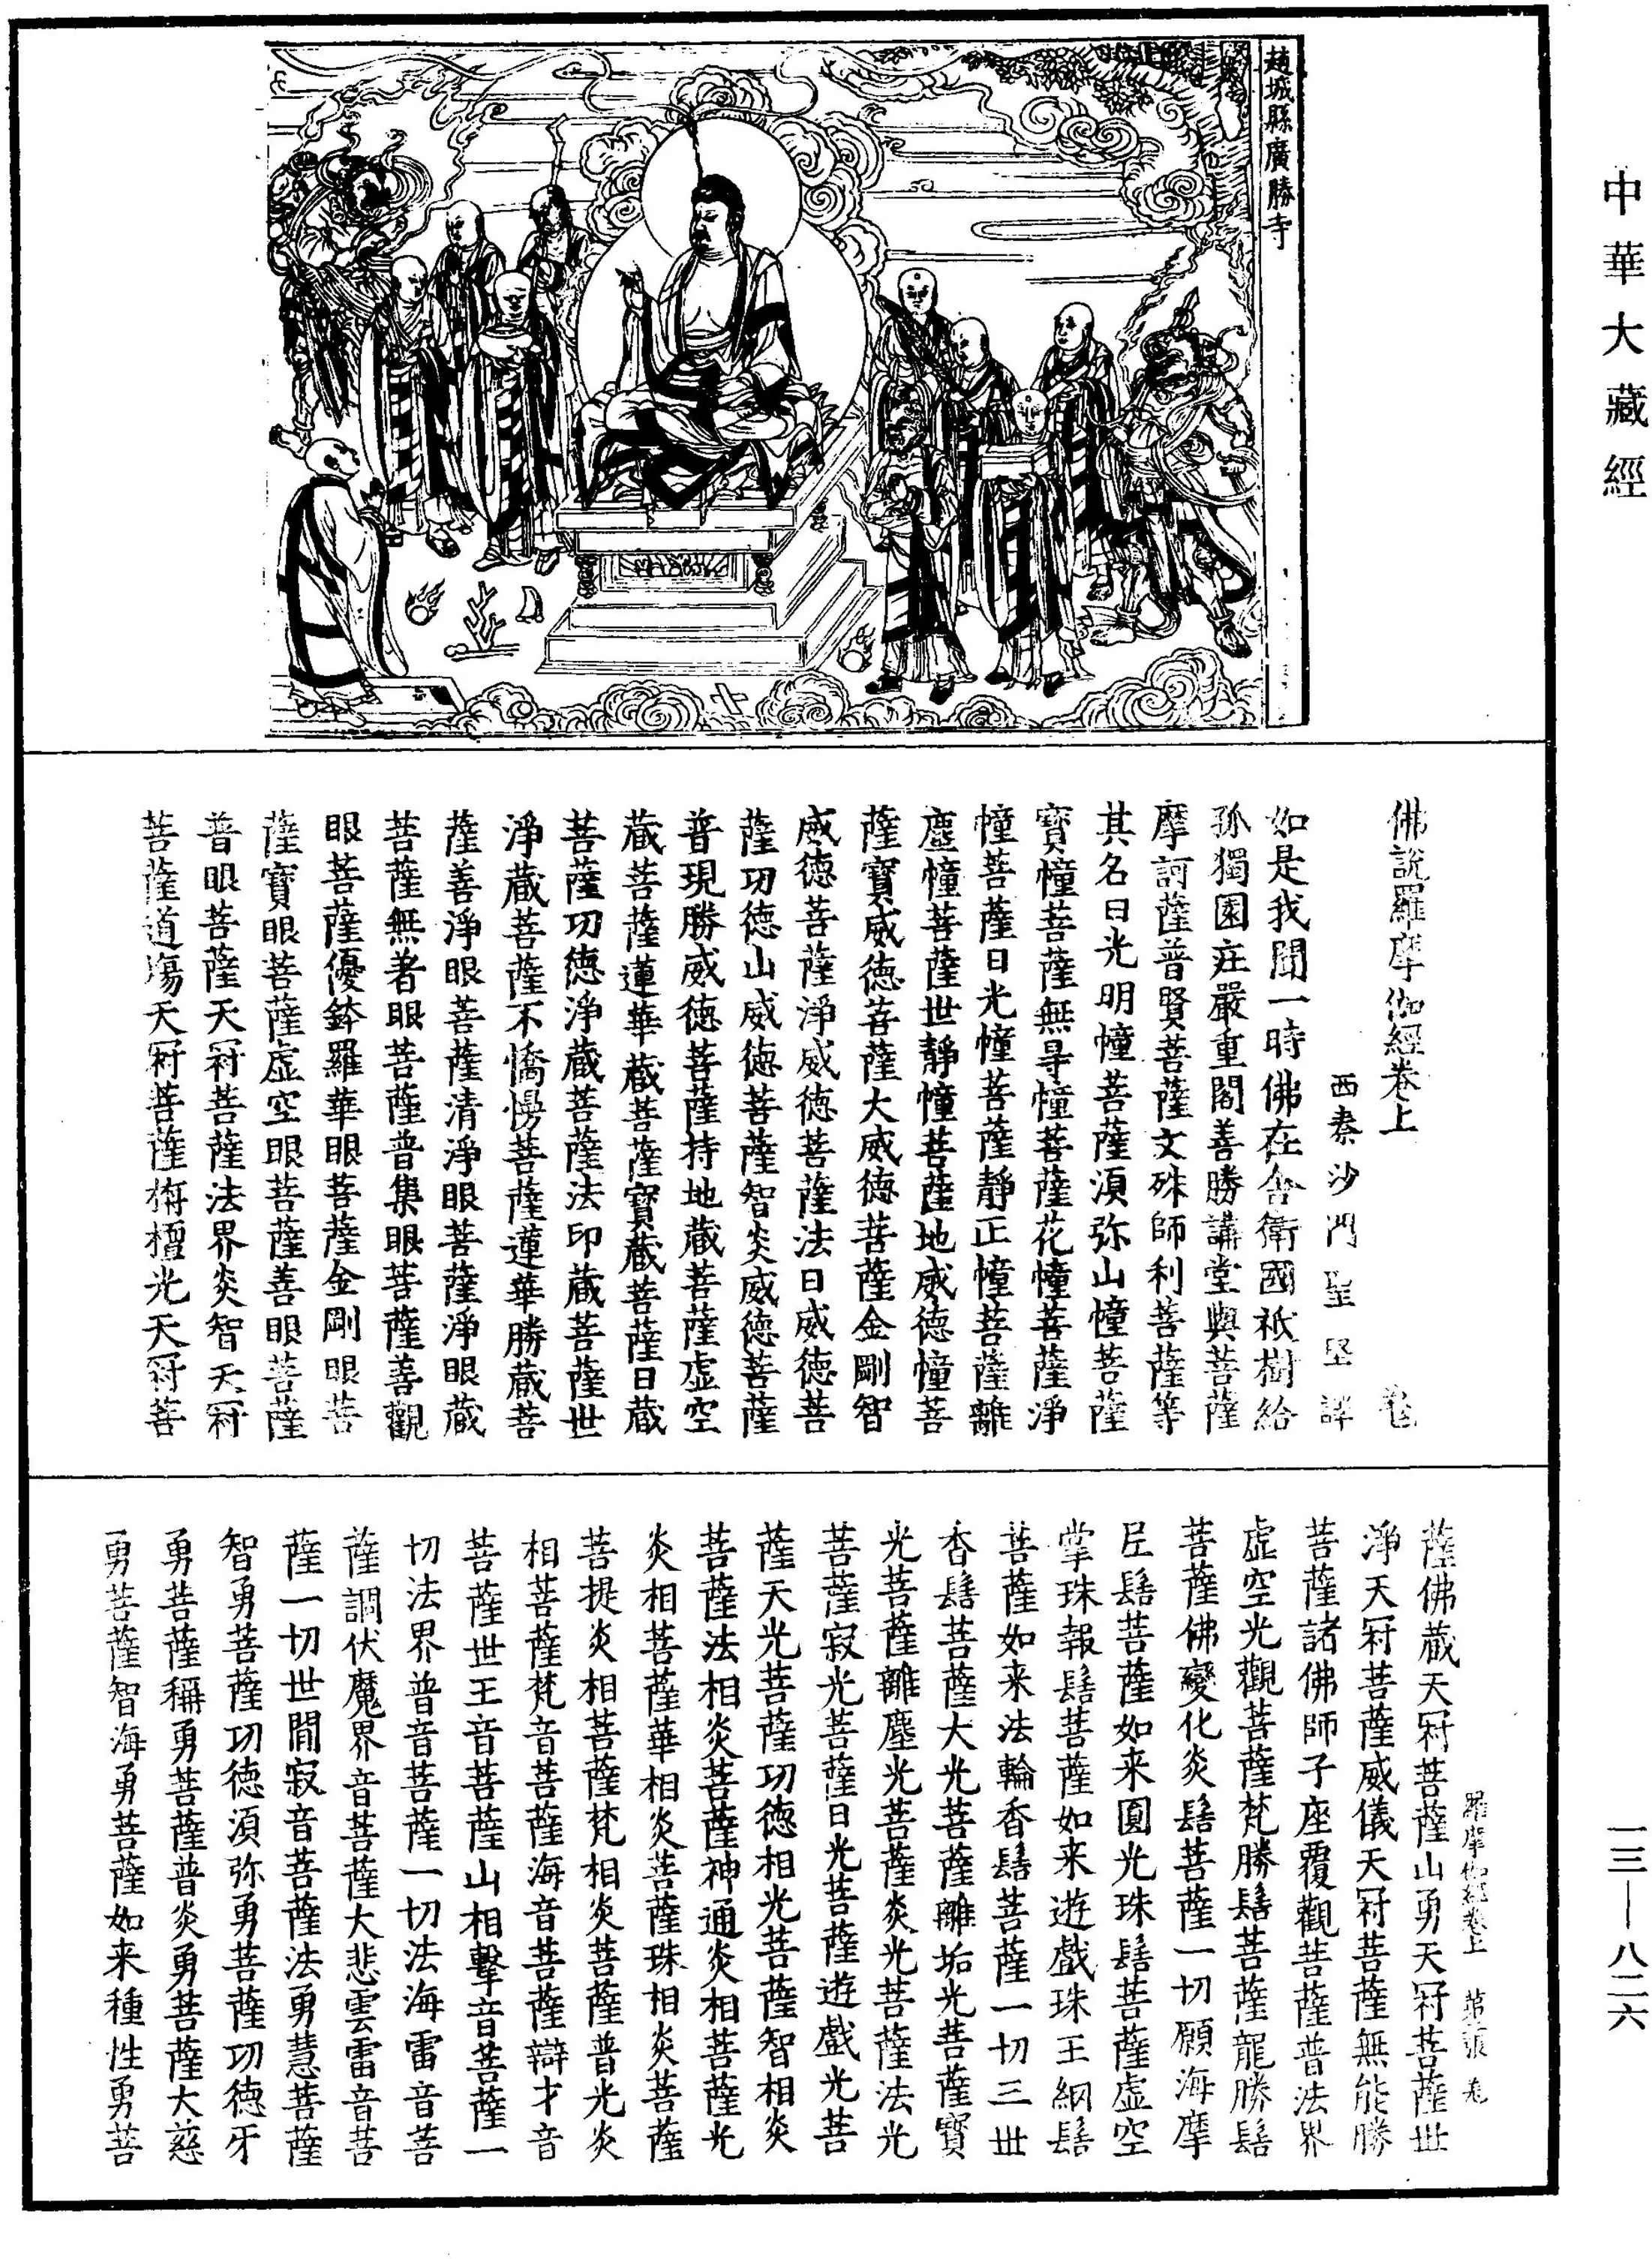 中華大藏經
趙城縣廣勝寺
佛說羅摩伽經卷上
西秦沙門聖堅譯
如是我聞一時佛在舍衛國祇樹給
孤獨園庄嚴重閣善勝講堂與菩薩
摩訶薩普賢菩薩文殊師利菩薩等
其名曰光明幢菩薩須弥山幢菩薩
寶幢菩薩無㝵幢菩薩花幢菩薩淨
幢菩薩日光幢菩薩靜正幢菩薩離
塵幢菩薩世靜幢菩薩地威德幢菩
薩寶威德菩薩大威德菩薩金剛智
威德菩薩淨威德菩薩法日威德菩
薩功德山威德菩薩智炎威德菩薩
普現勝威德菩薩持地藏菩薩虛空
藏菩薩蓮華藏菩薩寶藏菩薩日藏
菩薩功德淨藏菩薩法印藏菩薩世
淨藏菩薩不憍慢菩薩蓮華勝藏菩
薩善淨眼菩薩清淨眼菩薩淨眼藏
菩薩無著眼菩薩普集眼菩薩善觀
眼菩薩優鉢羅華眼菩薩金剛眼菩
薩寶眼菩薩虛空眼菩薩善眼菩薩
普眼菩薩天冠菩薩法界炎智天冠
菩薩道場天冠菩薩栴檀光天冠菩
羅摩伽經卷上
薩佛藏天冠菩薩山勇天冠菩薩世
淨天冠菩薩威儀天冠菩薩無能勝
菩薩諸佛師子座覆觀菩薩普法界
虛空光觀菩薩梵勝髻菩薩龍勝髻
菩薩佛變化炎髻菩薩一切願海摩
尼髻菩薩如来圓光珠髻菩薩虛空
掌珠報髻菩薩如来遊戲珠王網髻
菩薩如来法輪香髻菩薩一切三世
香髻菩薩大光菩薩離垢光菩薩寶
光菩薩離塵光菩薩炎光菩薩法光
菩薩寂光菩薩日光菩薩遊戲光菩
薩天光菩薩功德相光菩薩智相炎
菩薩法相炎菩薩神通炎相菩薩光
炎相菩薩華相炎菩薩珠相炎菩薩
菩提炎相菩薩梵相炎菩薩普光炎
相菩薩梵音菩薩海音菩薩辯才音
菩薩世王音菩薩山相擊音菩薩一
切法界普音菩薩一切法海雷音菩
薩調伏魔界音菩薩大悲雲雷音菩
薩一切世間寂音菩薩法勇慧菩薩
智勇菩薩功德須弥勇菩薩功德牙
勇菩薩稱勇菩薩普炎勇菩薩大慈
勇菩薩智海勇菩薩如来種性勇菩
一三—八二六